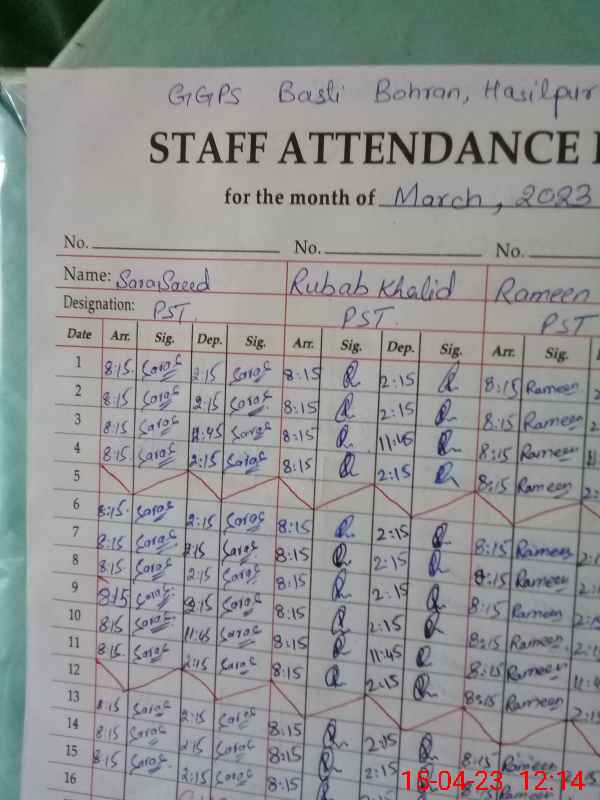 GGPS Basti Bohran, Hasilpur
STAFF ATTENDANCE
for the month of March, 2023
No. No. No.
Name: Sara Saeed Rubab Khalid Rameen
Designation: PST. PST. PST
Date Arr. Sig. Dep. Sig. Arr. Sig. Dep. Sig. Arr. Sig.
1 8:15 Saras 2:15 Saras 8:15 R 2:15 R 8:15 Rameen
2 8:15 Saras 2:15 Saras 8:15 R 2:15 R 8:15 Rameen
3 8:15 Saras 11:45 Saras 8:15 R 11:45 R 8:15 Rameen
4 8:15 Saras 2:15 Saras 8:15 R 2:15 R 8:15 Rameen
5
6 8:15 Saras 2:15 Saras 8:15 R 2:15 R 8:15 Rameen
7 8:15 Saras 2:15 Saras 8:15 R 2:15 R 8:15 Rameen
8 8:15 Saras 2:15 Saras 8:15 R 2:15 R 8:15 Rameen
9 8:15 Saras 2:15 Saras 8:15 R 2:15 R 8:15 Rameen
10 8:15 Saras 11:45 Saras 8:15 R 11:45 R 8:15 Rameen
11 8:15 Saras 2:15 Saras 8:15 R 2:15 R 8:15 Rameen
12
13 8:15 Saras 2:15 Saras 8:15 R 2:15 R 8:15 Rameen
14 8:15 Saras 2:15 Saras 8:15 R 2:15 R
15 8:15 Saras 2:15 Saras 8:15
16
15-04-23 12:14